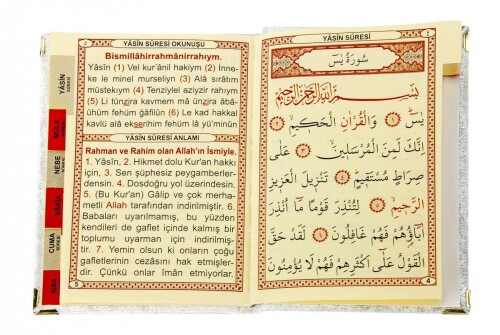 YÂSİN SÛRESİ OKUNUŞU
Bismillâhirrahmânirrahıym.
Yâsîn (1) Vel kur'ânil hakiym (2) İnne-
ke le minel murseliyn (3) Alâ sırâtım
müstekıym (4) Tenziylel aziyzir rahıym
(5) Li tünzira kavmem mâ ünzira âbâ-
ühüm fehüm gâfilûn (6) Le kad hakkal
kavlü alâ ekserihim fehüm lâ yü'minûn
YÂSİN SÛRESİ ANLAMI
Rahman ve Rahim olan Allah'ın İsmiyle.
1. Yâsîn, 2. Hikmet dolu Kur'an hakkı
için, 3. Sen şüphesiz peygamberler-
densin. 4. Dosdoğru yol üzerindesin.
5. (Bu Kur'an) Gâlip ve çok merha-
metli Allah tarafından indirilmiştir. 6.
Babaları uyarılmamış, bu yüzden
kendileri de gaflet içinde kalmış bir
toplumu uyarman için indirilmiş-
tir. 7. Yemin olsun ki onların çoğu
gafletlerinin cezâsını hak etmişler-
dir. Çünkü onlar îmân etmiyorlar.
5
YÂSİN
SÛRESİ
MÜLK
NEBE
VÂKIA
CUMA
KISA
YÂSİN SÛRESİ
سُورَةُ يٰسٓ
بِسْمِ اللهِ الرَّحْمٰنِ الرَّحِيمِ
يٰسٓ ﴿١﴾ وَالْقُرْاٰنِ الْحَكِيمِ ﴿٢﴾
اِنَّكَ لَمِنَ الْمُرْسَلِينَ ﴿٣﴾ عَلٰى
صِرَاطٍ مُسْتَقِيمٍ ﴿٤﴾ تَنْزِيلَ الْعَزِيزِ
الرَّحِيمِ ﴿٥﴾ لِتُنْذِرَ قَوْمًا مَٓا اُنْذِرَ
اٰبَٓاؤُهُمْ فَهُمْ غَافِلُونَ ﴿٦﴾ لَقَدْ حَقَّ
الْقَوْلُ عَلٰٓى اَكْثَرِهِمْ فَهُمْ لَا يُؤْمِنُونَ
4